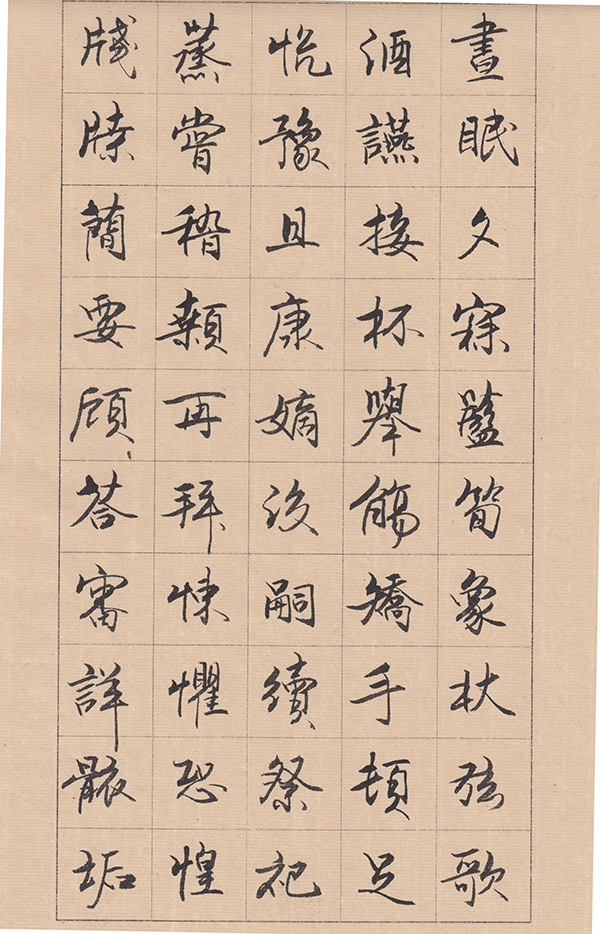 晝眠夕寐藍筍象杖弦歌
酒讌接杯舉觴矯手頓足
悅豫且康嫡後嗣續祭祀
蒸嘗稽顙再拜悚懼恐惶
牋牒簡要顧答審詳骸垢